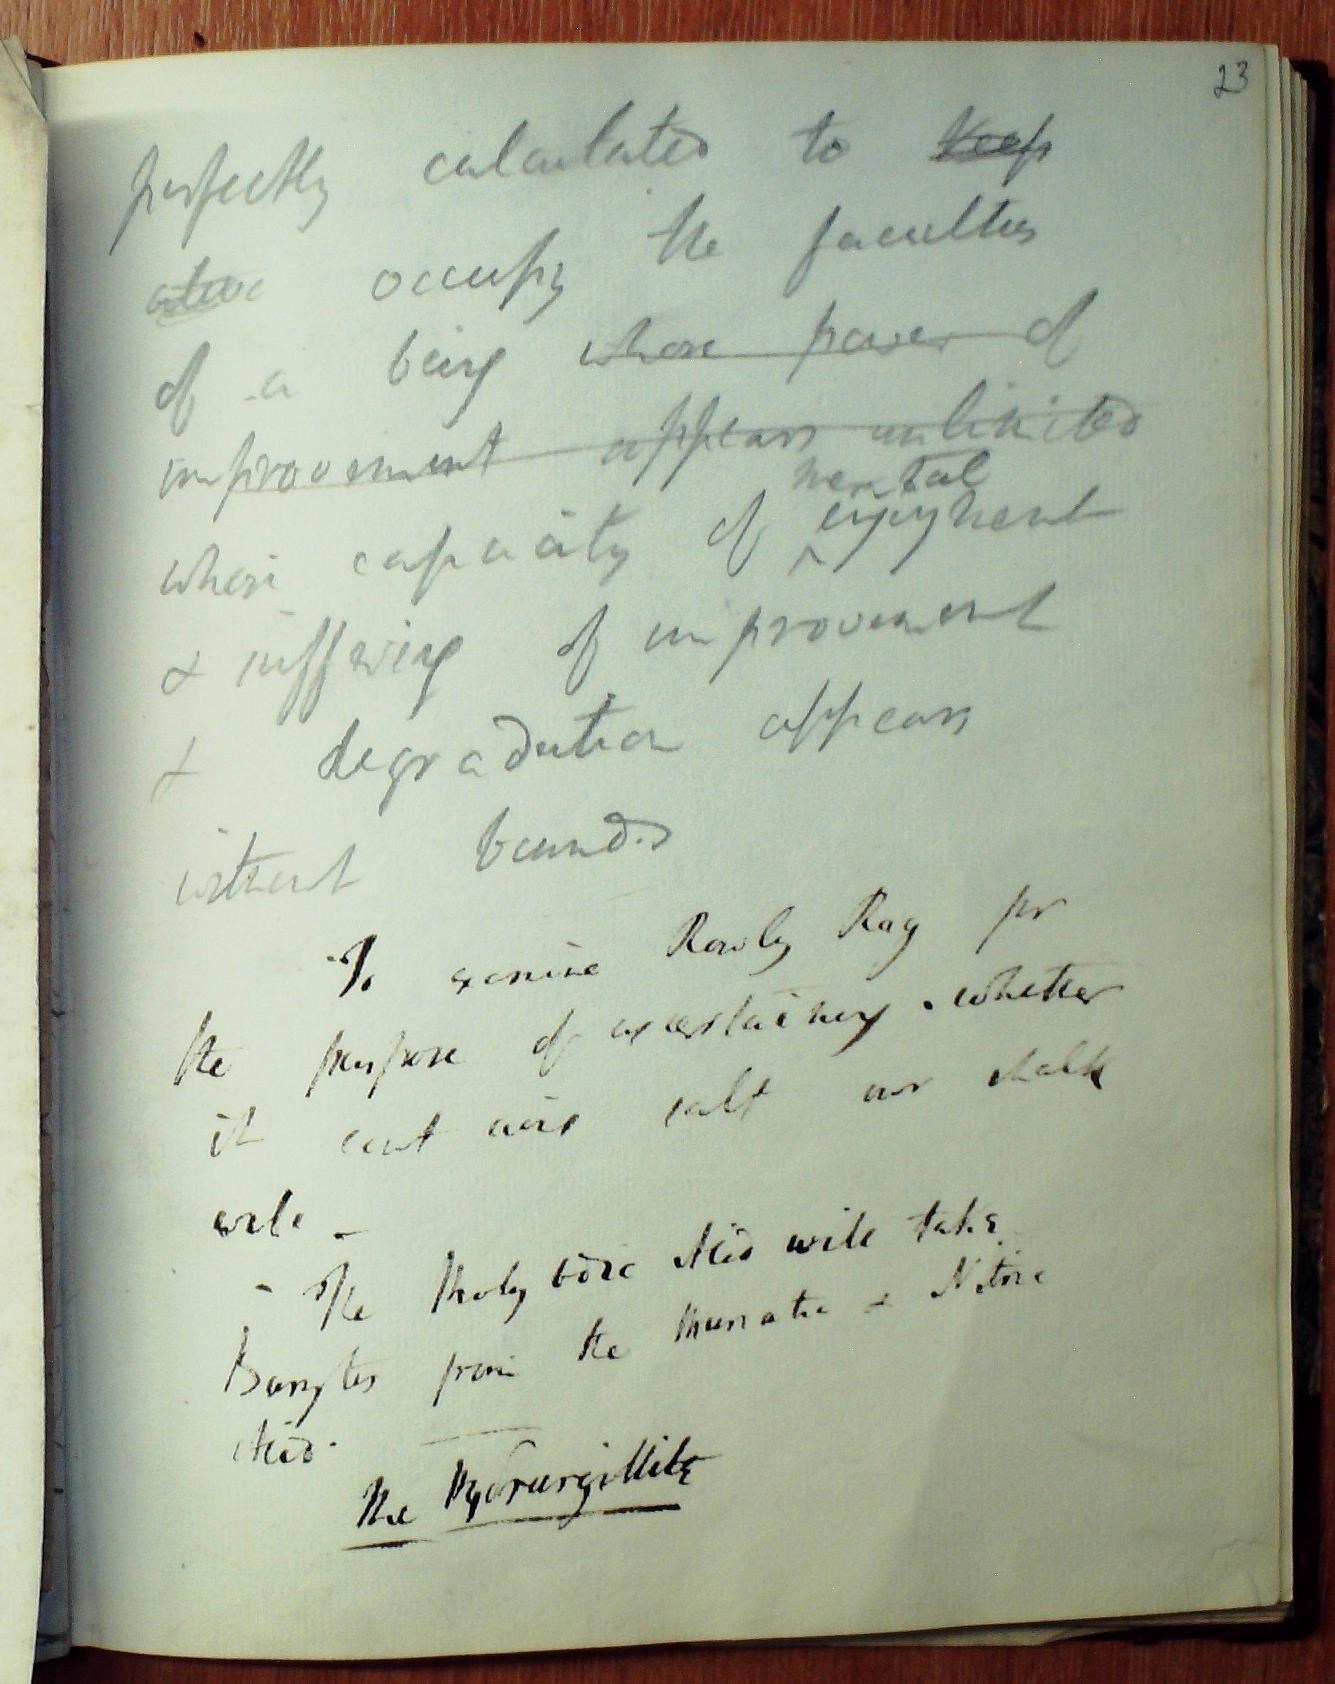 23
perfectly calculated to keep
alive occupy the faculties
of a being whose power of
improvement appears unlimited
mental
whose capacity of ^ enjoyment
& suffering of improvement
& degradation appears
without bounds
To examine Rowly Rag for
the purpose of ascertaining whether
it contains salt our chalk
will –
– The Molybdic Acid will take
Barytes from the Muriatic & Nitric
Acid.
The Hydrargillite